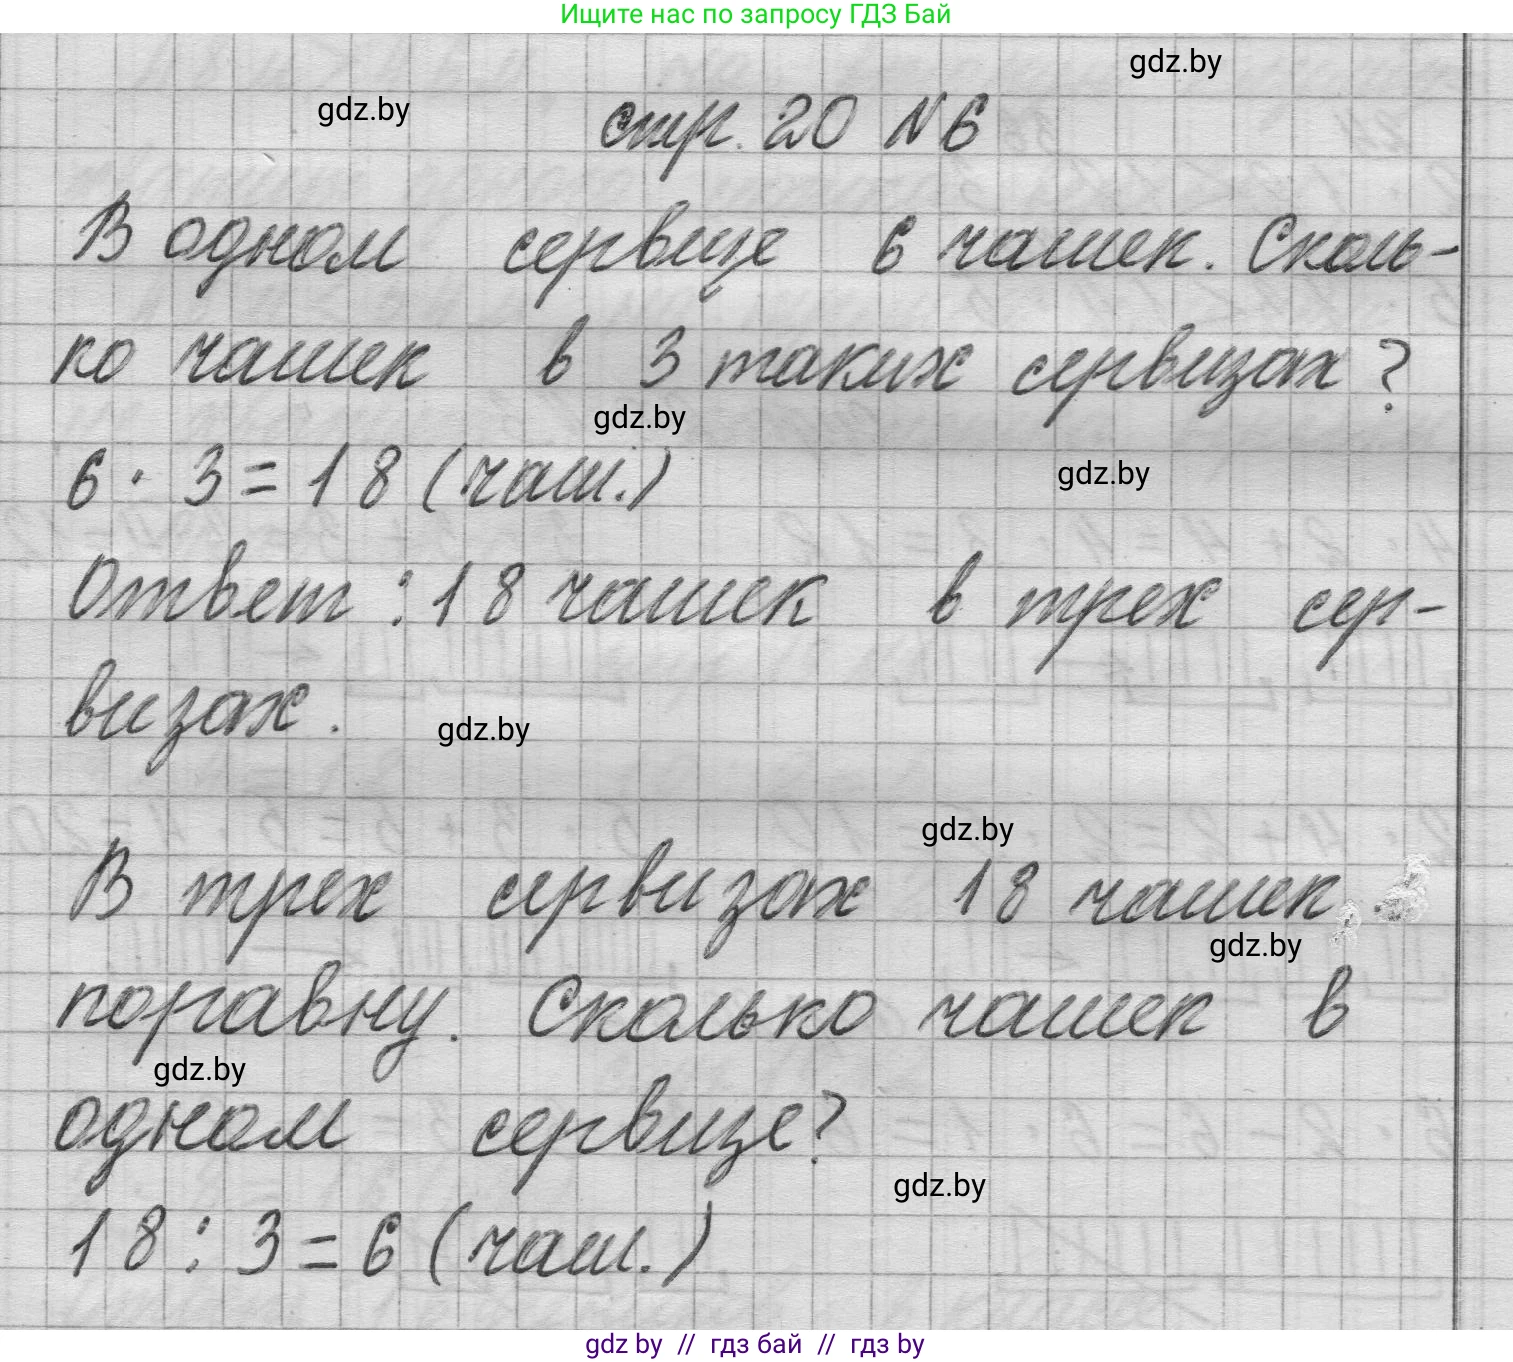 Ищите нас по запросу ГДЗ Бай
gdz.by
gdz.by
стр. 20 №6
В одном сервизе 6 чашек. Сколь-
ко чашек в 3 таких сервизах?
gdz.by
6 · 3 = 18 (чаш.)
gdz.by
Ответ: 18 чашек в трех сер-
визах.
gdz.by
gdz.by
В трех сервизах 18 чашек
gdz.by
поравну. Сколько чашек в
gdz.by
одном сервизе?
gdz.by
18 : 3 = 6 (чаш.)
gdz by // гдз бай // гдз by